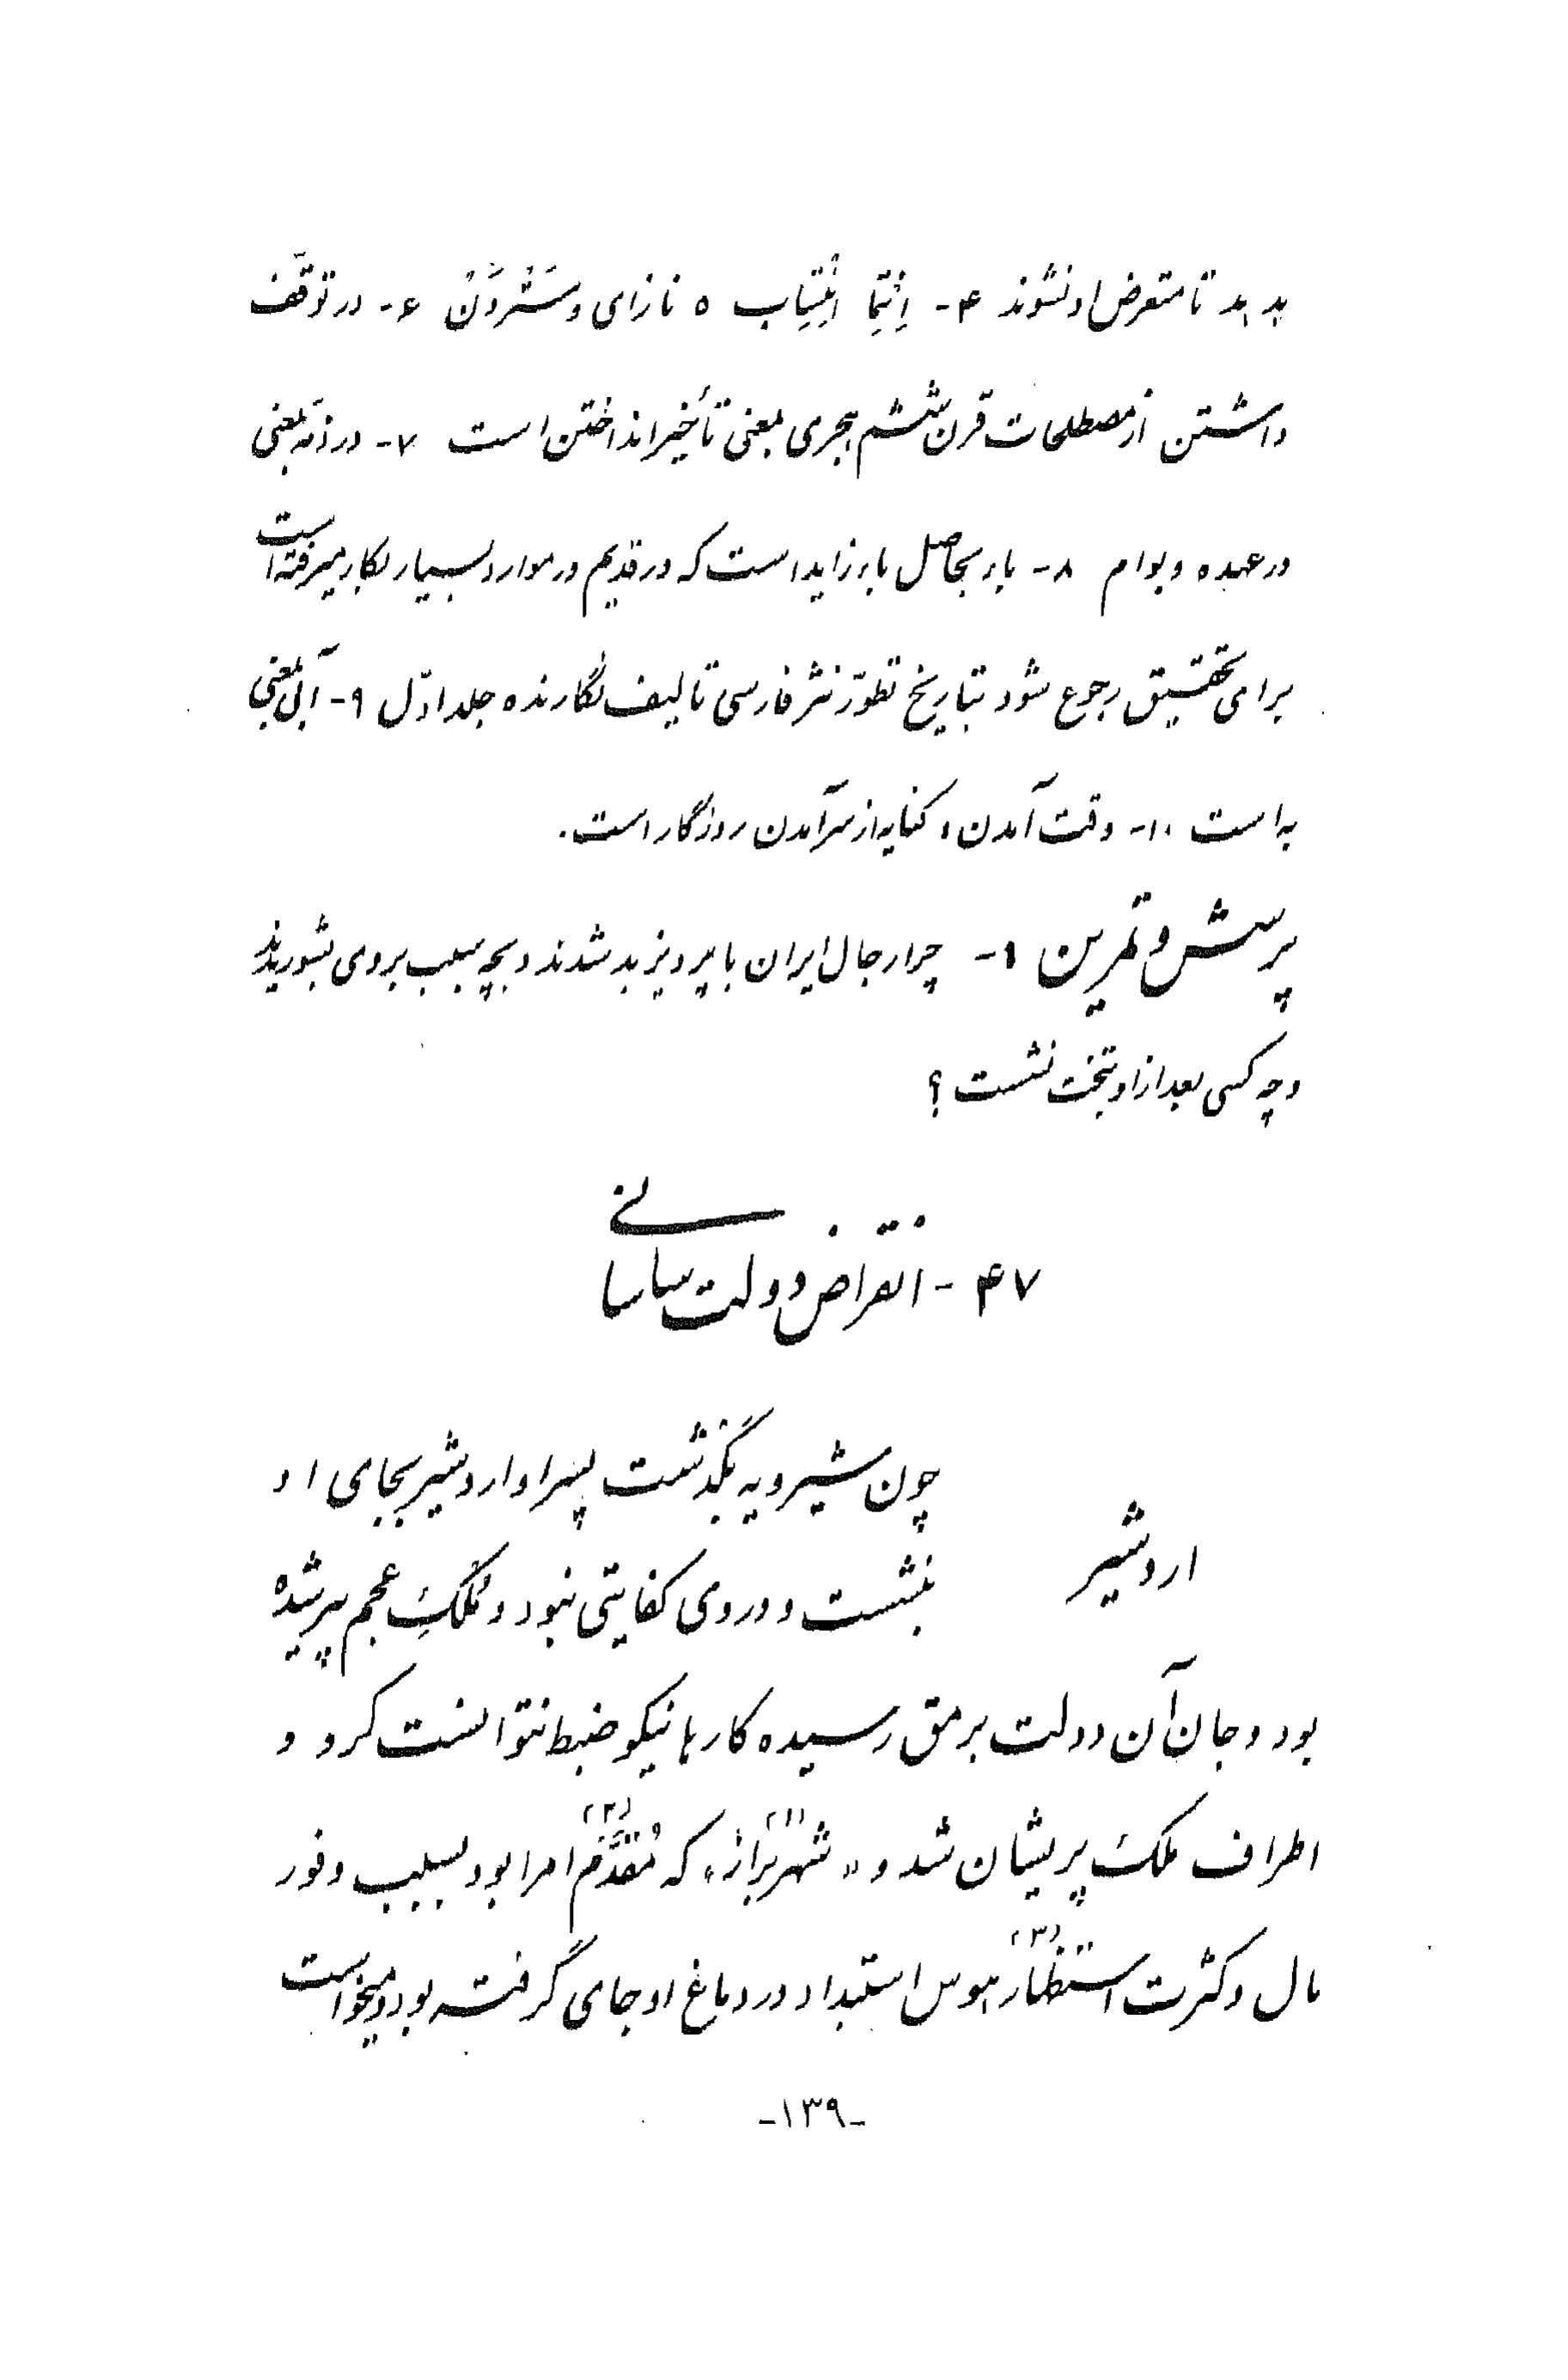 بدهد تا متعرض او نشوند ۴- اِنْتِما اِنْتِساب ۵ نازای و سَتَرْوَنْ ۶- در توقّف
داشتن از مصطلحات قرن ششم هجری بمعنی تأخیر انداختن است ۷- در ذمّه بمعنی
در عهده و بوام ۸- باء بحاصل باء زاید است که در قدیم در موارد بسیار بکار میرفته است
برای تحقیق رجوع شود بتاریخ تطوّر نثر فارسی تالیف نگارنده جلد اوّل ۹- آبی بمعنی
به است ۱۰- وقت آمدن، کنایه از سرآمدن روزگار است.
پرسش و تمرین ۱- چرا رجال ایران با پرویز بد شدند و بچه سبب بروی بشوریدند
و چه کسی بعد از او بتخت نشست ؟
۴۷- انقراض دولت ساسانی
چون شیرویه بگذشت پسر او اردشیر بجای او
اردشیر
بنشست و در وی کفایتی نبود و مُلکِ عجم پیر شده
بود و جان آن دولت برمق رسیده کارها نیکو ضبط نتوانست کرد و
اطراف ملک پریشان شد و «شهربَراز»(۱) که مُقَدَّم(۲) امرا بود بسبب وفور
مال و کثرت استظهار(۳) هوس استبداد در دماغ او جای گرفته بود و میخواست
-۱۳۹-